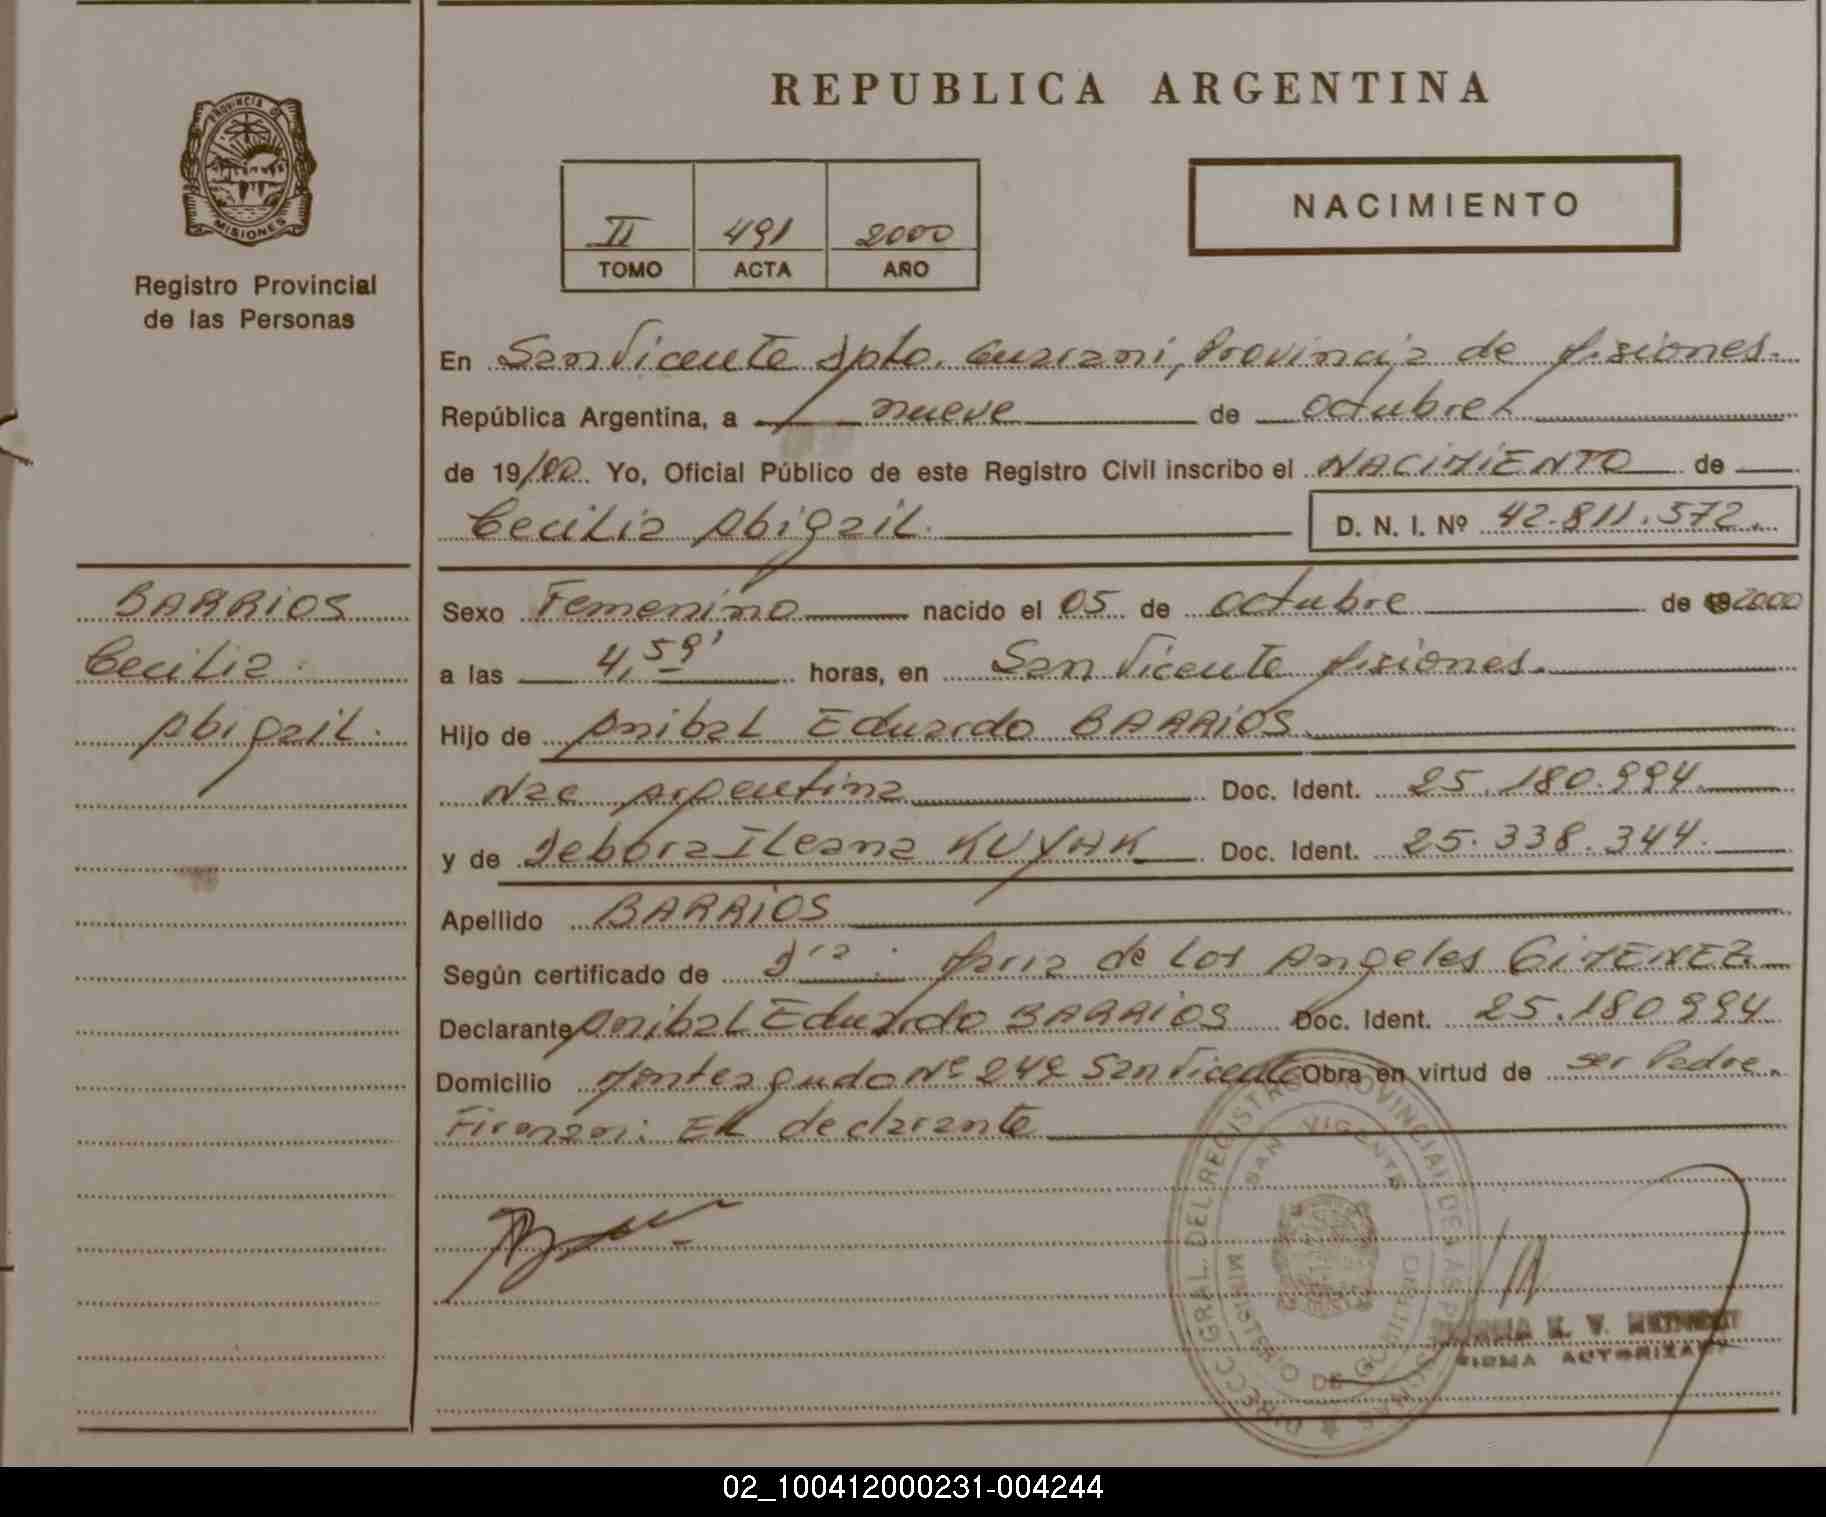 PROVINCIA DE
MISIONES
Registro Provincial
de las Personas
BARRIOS
Cecilia
Abigail.
REPUBLICA ARGENTINA
II 491 2000
TOMO ACTA AÑO
NACIMIENTO
En San Vicente Dpto. Guarani, Provincia de Misiones.
República Argentina, a nueve de octubre
de 19/00. Yo, Oficial Público de este Registro Civil inscribo el NACIMIENTO de
Cecilia Abigail. D. N. I. Nº 42.811.572.
Sexo Femenino nacido el 05 de octubre de 2000
a las 4,59' horas, en San Vicente Misiones.
Hijo de Anibal Eduardo BARRIOS
Nac Argentina Doc. Ident. 25.180.994.
y de Debora Ileana KUYAK Doc. Ident. 25.338.344.
Apellido BARRIOS
Según certificado de Dra. Maria de Los Angeles GIMENEZ
Declarante Anibal Eduardo BARRIOS Doc. Ident. 25.180994
Domicilio Monteagudo Nº 249 San Vicente Obra en virtud de ser Padre.
Firman: El declarante
DIRECC. GRAL. DEL REGISTRO PROVINCIAL DE LAS PERSONAS
SAN VICENTE
MINISTERIO DE GOBIERNO
K. V.
FIRMA AUTORIZADA
02_100412000231-004244